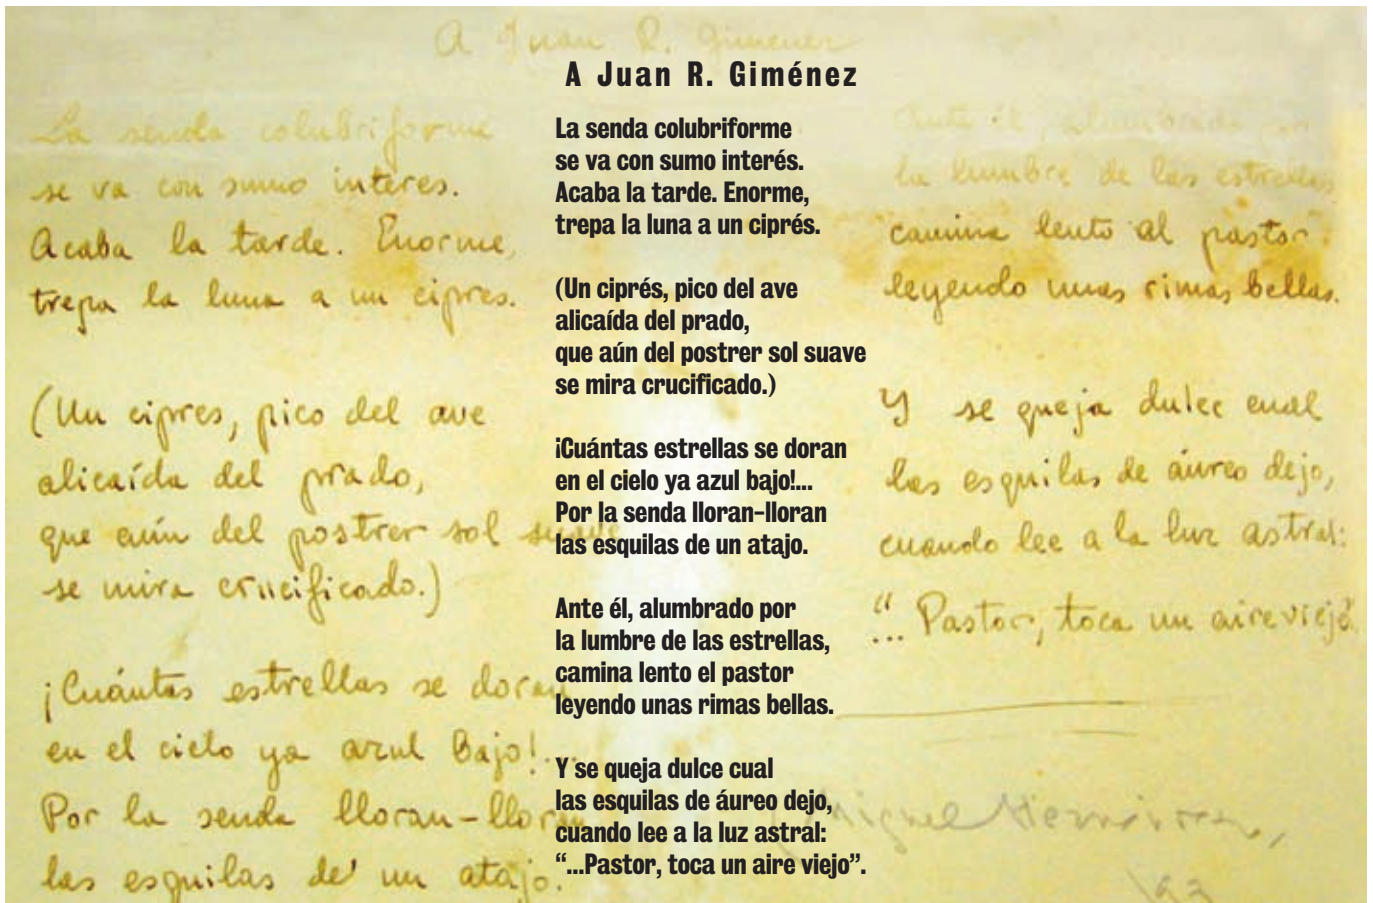 A Juan R. Gimenez
La senda colubriforme
se va con sumo interes.
Acaba la tarde. Enorme,
trepa la luna a un cipres.
(Un cipres, pico del ave
alicaída del prado,
que aún del postrer sol suave
se mira crucificado.)
¡Cuántas estrellas se doran
en el cielo ya azul bajo!...
Por la senda lloran-lloran
las esquilas de un atajo.
A Juan R. Giménez
La senda colubriforme
se va con sumo interés.
Acaba la tarde. Enorme,
trepa la luna a un ciprés.
(Un ciprés, pico del ave
alicaída del prado,
que aún del postrer sol suave
se mira crucificado.)
¡Cuántas estrellas se doran
en el cielo ya azul bajo!...
Por la senda lloran-lloran
las esquilas de un atajo.
Ante él, alumbrado por
la lumbre de las estrellas,
camina lento el pastor
leyendo unas rimas bellas.
Y se queja dulce cual
las esquilas de áureo dejo,
cuando lee a la luz astral:
“...Pastor, toca un aire viejo”.
Ante él, alumbrado por
la lumbre de las estrellas
camina lento el pastor
leyendo unas rimas bellas.
Y se queja dulce cual
las esquilas de áureo dejo,
cuando lee a la luz astral:
“... Pastor, toca un aire viejo”.
Miguel Hernández,